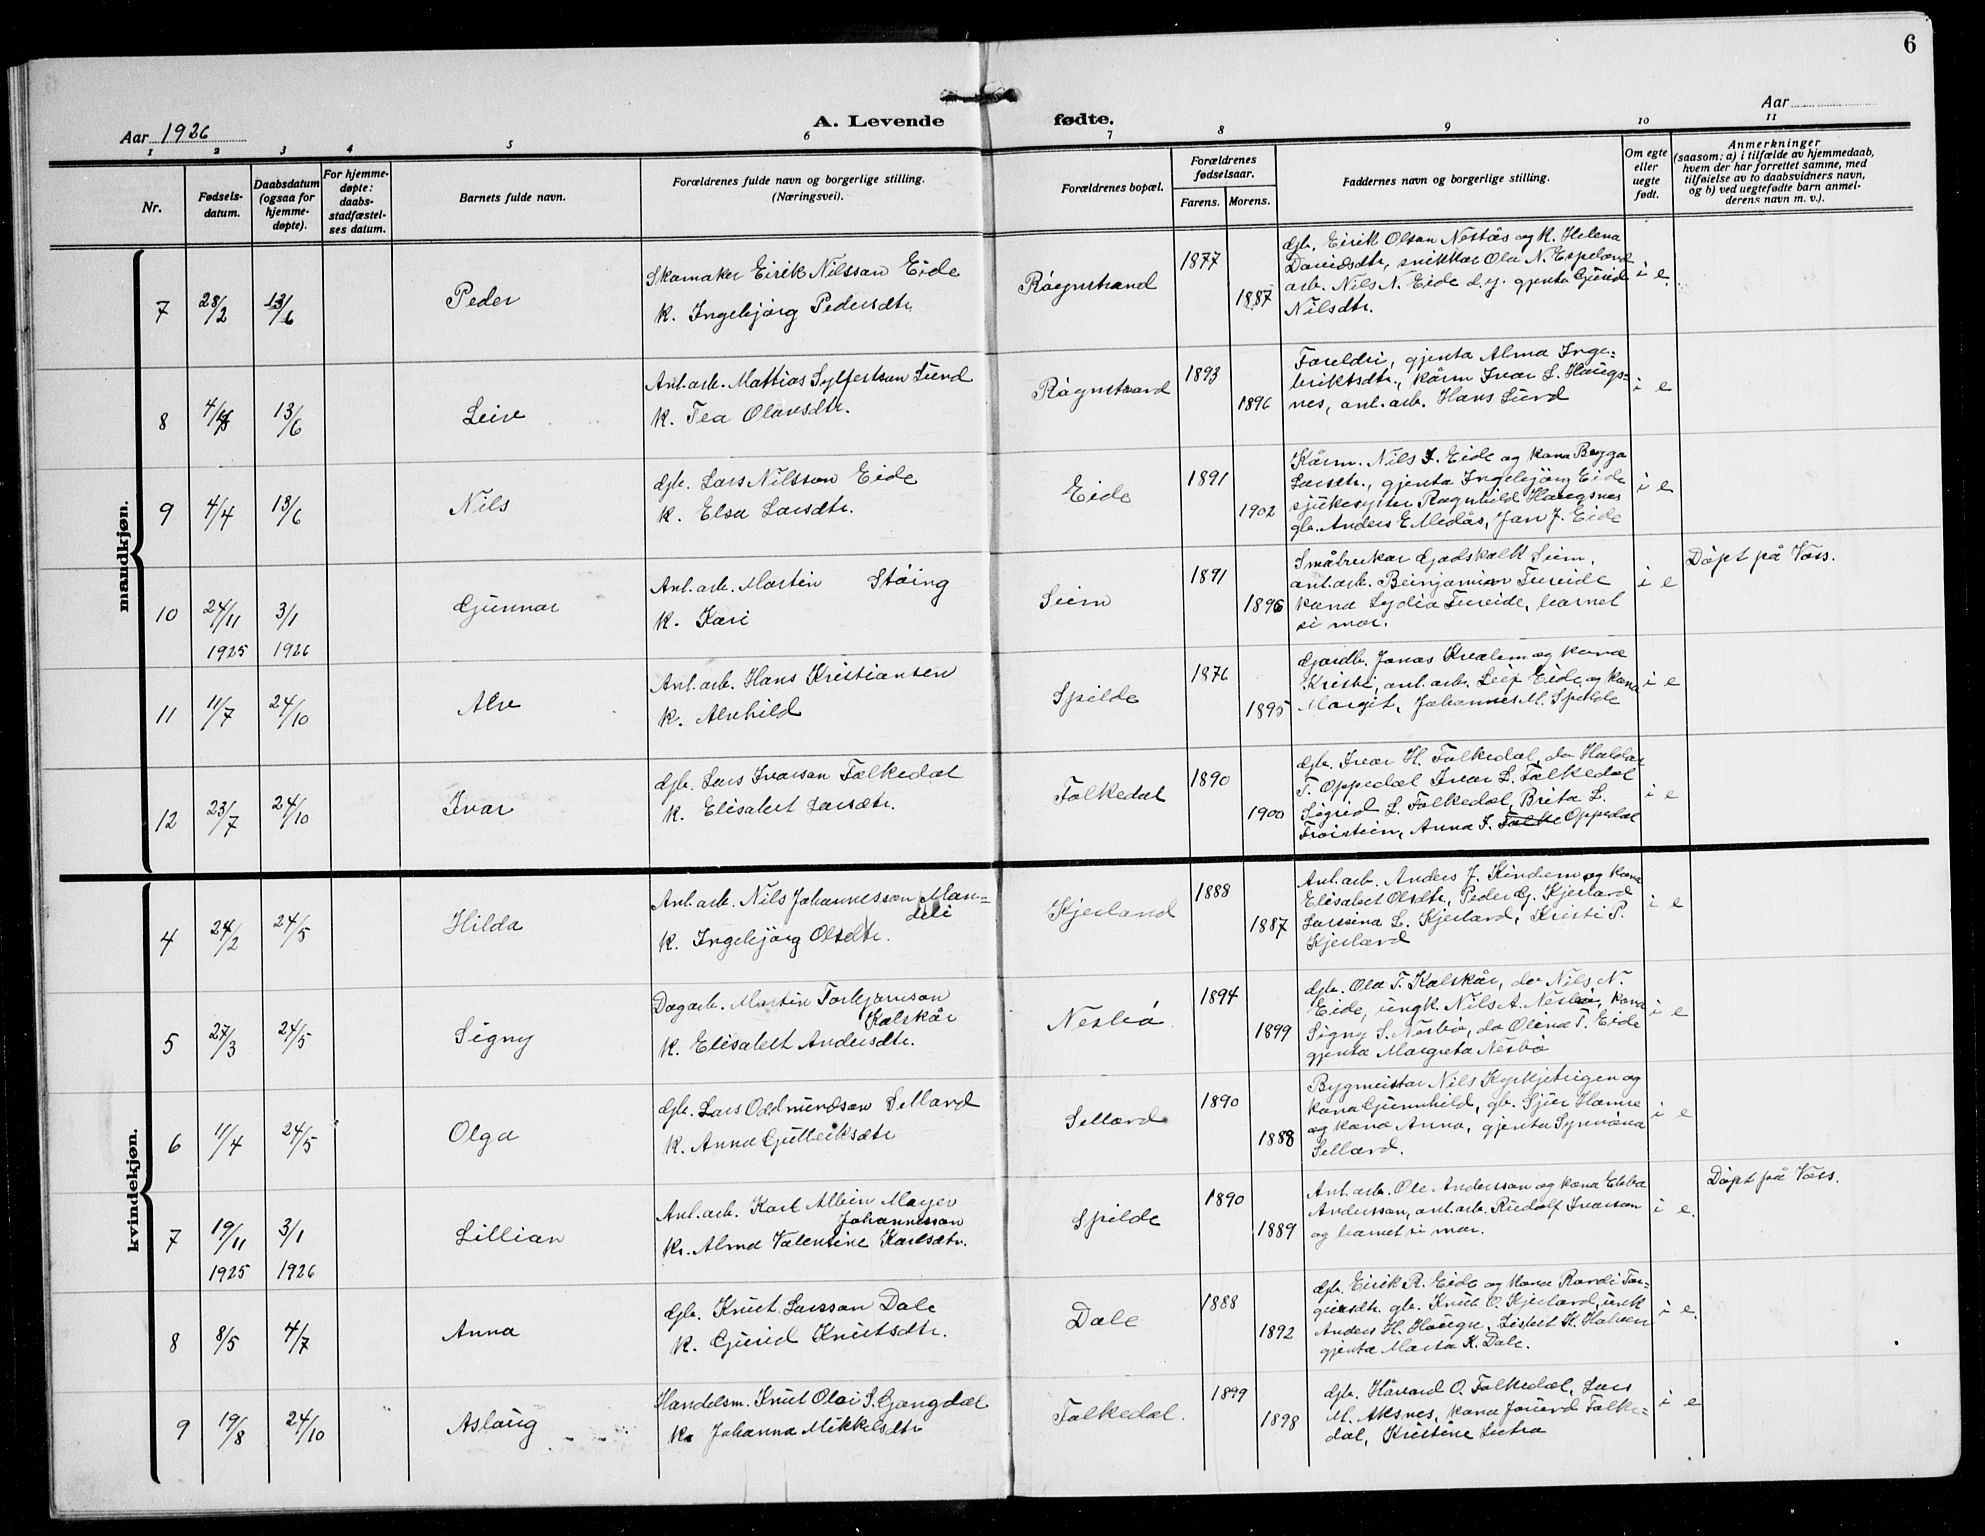 6
Aar 1926
A. Levende fødte.
Aar
1 2 3 4 5 6 7 8 9 10 11
Nr.
Fødsels-
datum.
Daabsdatum
(ogsaa for
hjemme-
døpte).
For hjemme-
døpte:
daabs-
stadfæstel-
ses datum.
Barnets fulde navn.
Forældrenes fulde navn og borgerlige stilling.
(Næringsvei).
Forældrenes bopæl.
Forældrenes
fødselsaar.
Farens. Morens.
Faddernes navn og borgerlige stilling.
Om egte
eller
uegte
født.
Anmerkninger
(saasom: a) i tilfælde av hjemmedaab,
hvem der har forrettet samme, med
tilføielse av to daabsvidners navn,
og b) ved uegtefødte barn anmel-
derens navn m. v.).
mandkjøn.
7 28/2 13/6 Peder
Skomaker Eirik Nilsson Eide
k. Ingebjörg Pedersdtr.
Rögnstrand 1877 1887
gb. Eirik Olson Nestås og k. Helena
Davidsdtr, snikkar Ola N. Espeland
arb. Nils N. Eide d.y. gjenta Gurid
Nilsdtr.
i e.
8 4/5 13/6 Leiv
Anl.arb. Mattias Sylfestson Lund
k. Tea Olavsdtr.
Rögnstrand 1893 1896
Foreldri, gjenta Alma Inge-
briktsdtr., kårm Ivar L. Haugs-
nes, anl.arb. Hans Lund
i e
9 4/4 13/6 Nils
gb. Lars Nilsson Eide
k. Elsa Larsdtr.
Eide 1891 1902
Kårm. Nils I. Eide og kona Brygga
Larsdtr., gjenta Ingebjörg Eide
sjukesyster Ragnhild Haugsnes
gb. Anders E Medås, Jon J. Eide
i e
10 24/11 3/1 Gunnar
1925 1926
Anl.arb. Martin Stöing
k. Kari
Seim 1891 1896
Småbrukar Godskalk Seim,
anl.arb. Beinjamin Tureide
kona Lydia Tureide, barnet
si mor.
i e
Döpt på Voss.
11 11/7 24/10 Alv
Anl.arb. Hans Kristiansen
k. Alvhild
Spilde 1876 1895
Gardb. Jonas Kvalem og kona
Kristi, anl.arb. Leif Eide og kona
Margit, Johannes M. Spilde
i e
12 23/7 24/10 Ivar
gb. Lars Ivarson Folkedal
k. Elisabet Larsdtr.
Folkedal 1890 1900
gb. Ivar H. Folkedal, do Haldor
T. Oppedal Ivar L. Folkedal
Sigrid L. Folkedal, Brita L.
Froistein, Anna I. Folke Oppedal
i e
kvindekjøn.
4 24/2 24/5 Hilda
Anl.arb. Nils Johannesson Man-
deli
k. Ingebjörg Olsdtr.
Kjerland 1888 1887
Anl.arb. Anders J. Kindem og kona
Elisabet Olsdtr, Peder G. Kjerland
Larsina L. Kjerland, Kristi P.
Kjerland
i e
5 27/3 24/5 Signy
Dagarb. Martin Torbjørnson
Kolskår
k. Elisabet Andersdtr.
Nesbö 1894 1899
gb. Ola T. Kolskår, do Nils N.
Eide, ungk. Nils A. Nesbö, kona
Signy S. Nesbö, do Olina T. Eide
gjenta Margreta Nesbö
i e
6 11/4 24/5 Olga
gb. Lars Oddmundson Selland
k. Anna Gutleiksdtr
Selland 1890 1888
Bygmeistar Nils Kyrkjeteigen og
kona Gunnhild, gb. Sjur Hamre
og kona Anna, gjenta Synnöva
Selland.
i e
7 19/11 3/1 Lillian
1925 1926
Anl.arb. Karl Albin Mayer
Johannesson
k. Alma Valentine Karlsdtr.
Spilde 1890 1889
Anl.arb. Ole Andersson og kona Ebba
Andersson, anl.arb. Rudolf Ivarson
og barnet si mor.
i e.
Döpt på Voss.
8 8/5 4/7 Anna
gb. Knut Larsson Dale
k. Gurid Knutsdtr.
Dale 1888 1892
gb. Eirik R. Eide og kona Randi Tor-
geirsdtr. gb. Knut O. Kjerland, unk
Anders H. Haugse, Lisbet K. Halven
gjenta Marta K. Dale.
i e.
9 19/8 24/10 Aslaug
Handelsm. Knut Olai S. Gangdal
k. Johanna Mikkelsdtr
Folkedal. 1899 1898
gb. Håvard O. Folkedal, Lars
M. Aksnes, kona Jorund Folke-
dal, Kristine Lutro
i e